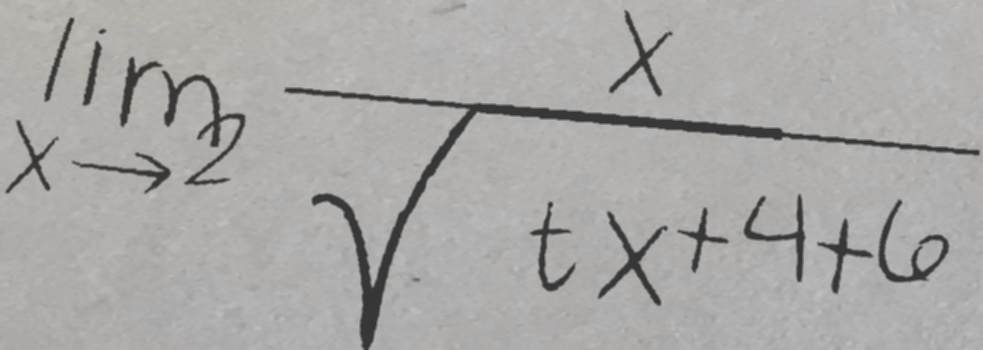 lim x→2 x / √ tx+4+6